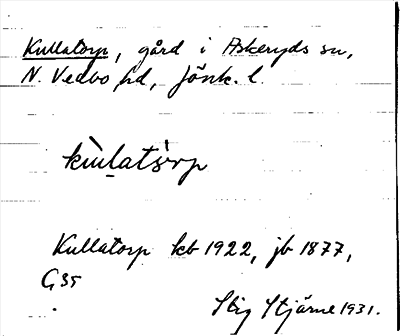 Kullatorp, gård i Askeryds sn,
N. Vedbo hd, Jönk. l.
kùlatòrp
Kullatorp kb 1922, jb 1877,
G 35
Stig Stjärne 1931.